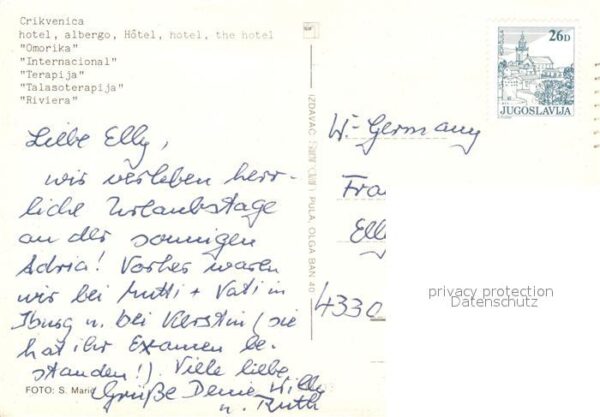 Crikvenica
hotel, albergo, Hôtel, hotel, the hotel
"Omorika"
"Internacional"
"Terapija"
"Talasoterapija"
"Riviera"
Liebe Elly,
wir verleben herr-
liche Urlaubstage
an der sonnigen
Adria! Vorher waren
wir bei Mutti + Vati in
Iburg u. bei Kerstin (sie
hat ihr Examen be-
standen!). Viele liebe
Grüße Deine Willy
u. Ruth
FOTO: S. Marić
IZDAVAČ: PULA, OLGA BAN 40
26D
JUGOSLAVIJA
W-Germany
Fra
Elly
4330
privacy protection
Datenschutz